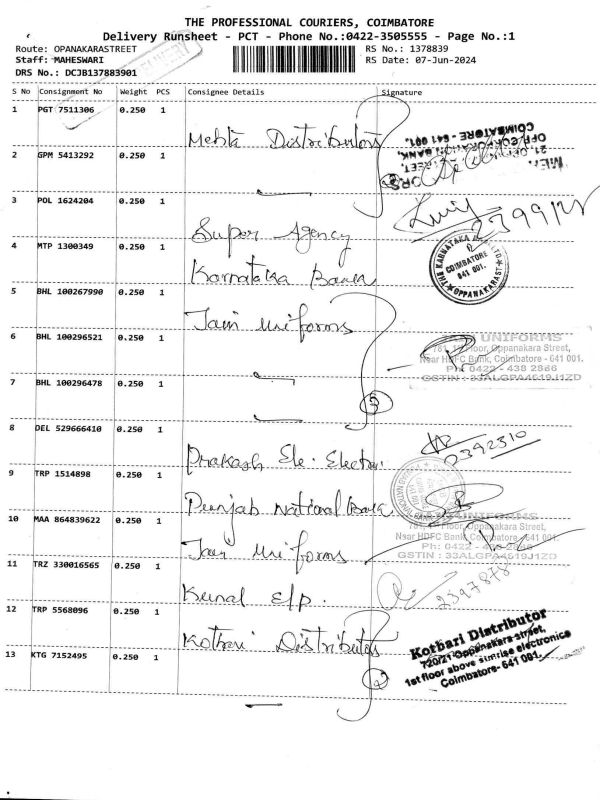 THE PROFESSIONAL COURIERS, COIMBATORE
Delivery Runsheet - PCT - Phone No.:0422-3505555 - Page No.:1
Route: OPANAKARASTREET RS No.: 1378839
Staff: MAHESWARI RS Date: 07-Jun-2024
DRS No.: DCJB137883901
DELIVERY
S No Consignment No Weight PCS Consignee Details Signature
1 PGT 7511306 0.250 1
Mehta Distributors
COIMBATORE - 641 001.
2 GPM 5413292 0.250 1
3 POL 1624204 0.250 1
Super Agency
4 MTP 1300349 0.250 1
Karnataka Bank
THE KARNATAKA
COIMBATORE
641 001.
OPPANAKARAST
5 BHL 100267990 0.250 1
Jain Uniforms
6 BHL 100296521 0.250 1
UNIFORMS
Floor, Oppanakara Street,
Near HDFC Bank, Coimbatore - 641 001.
Ph: 0422 - 438 2866
GSTIN : 33ALGPA4619J1ZD
7 BHL 100296478 0.250 1
3
8 DEL 529666410 0.250 1
Prakash Ele. Electri
2392310
9 TRP 1514898 0.250 1
Punjab National Bank
10 MAA 864839622 0.250 1
UNIFORMS
Floor, Oppanakara Street,
Near HDFC Bank, Coimbatore - 641 001.
Ph: 0422 - 438 2866
GSTIN : 33ALGPA4619J1ZD
Jain Uniforms
11 TRZ 330016565 0.250 1
Kunal E/p.
2397878
12 TRP 5568096 0.250 1
Kothari Distributors
Kothari Distributor
720/21 Oppanakara street,
1st floor above sunrise electronics
Coimbatore- 641 001.
13 KTG 7152495 0.250 1
2